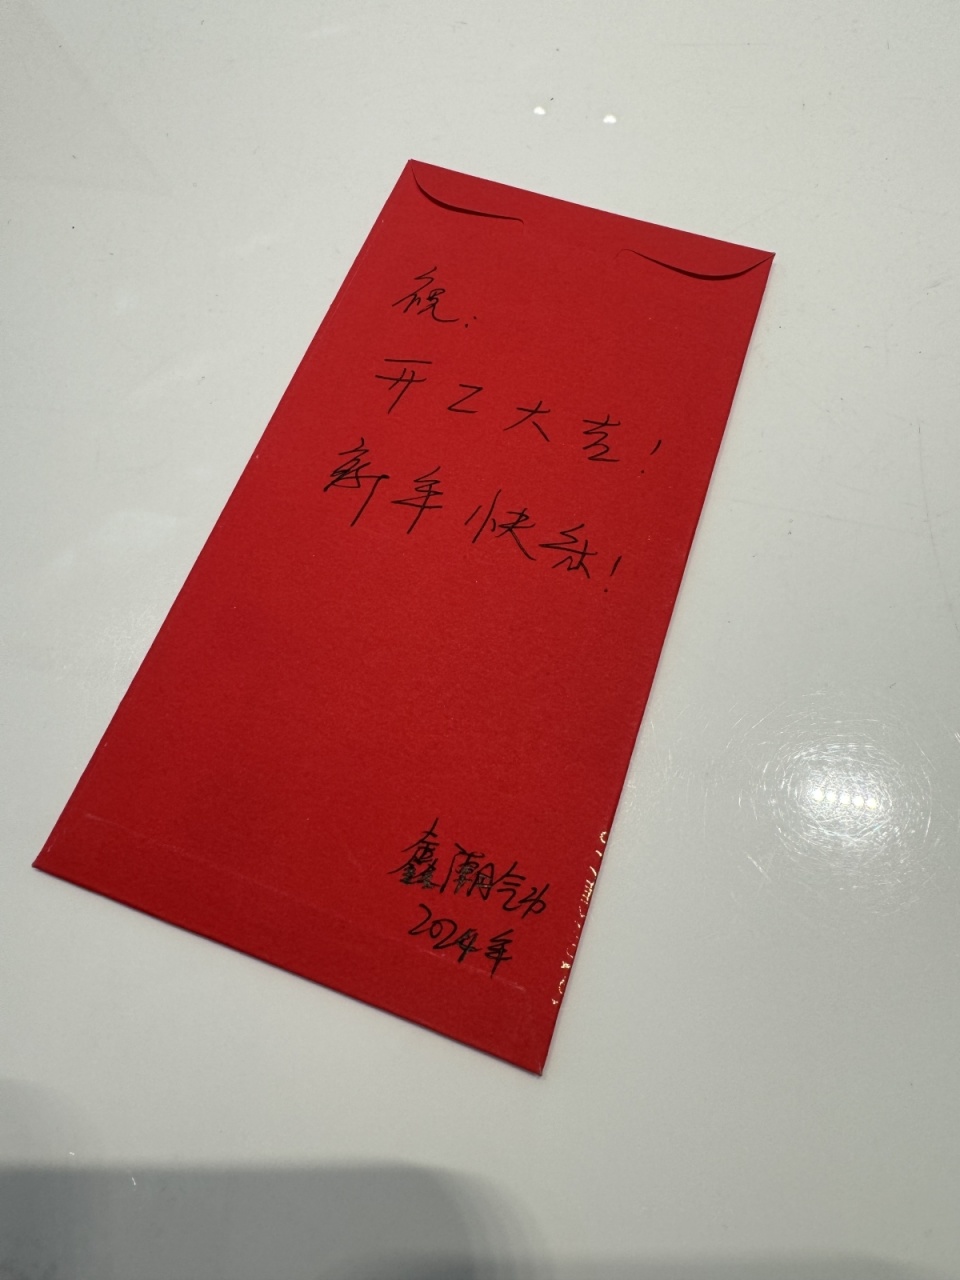 祝:
开工大吉!
新年快乐!
鑫潮气动
2024年